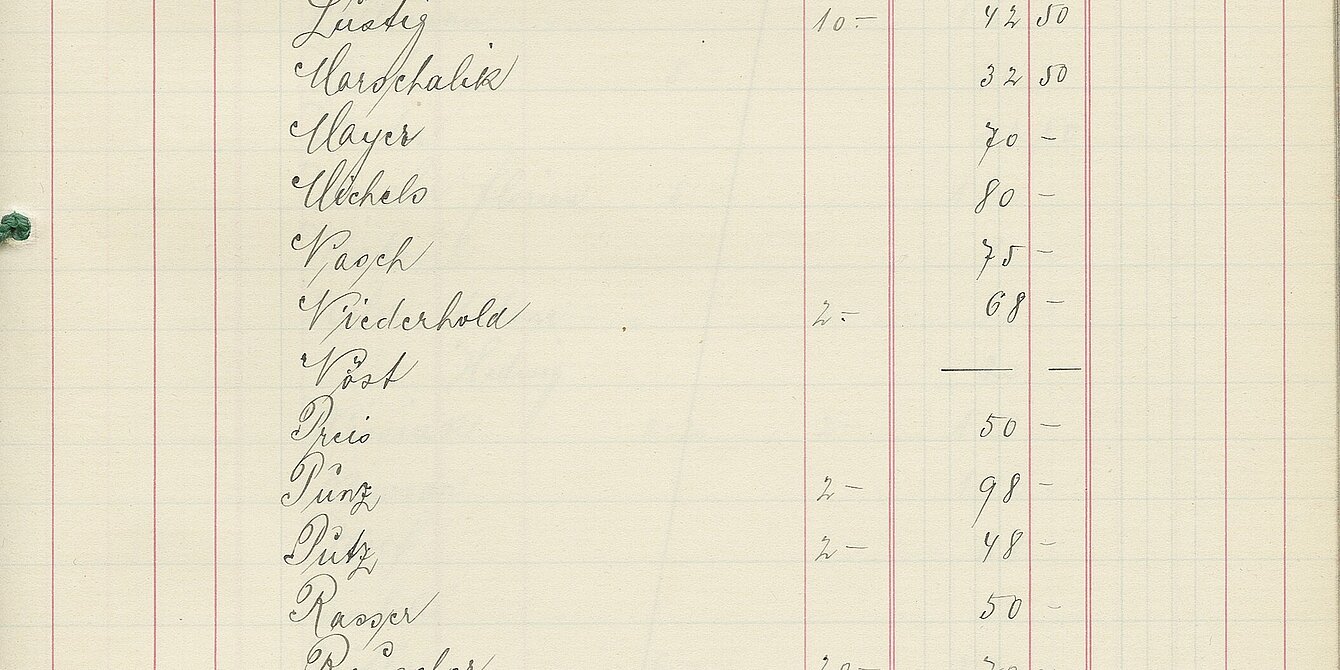 Lustig 10.– 42 50
Marschalik 32 50
Mayer 70 –
Michels 80 –
Nasch 75 –
Niederhold 2.– 68 –
Nöst — —
Preis 50 –
Punz 2 – 98 –
Putz 2 – 48 –
Rasser 50 –